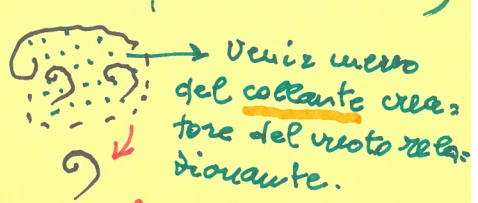 Venir meno
del collante crea=
tore del vuoto rela=
zionante.